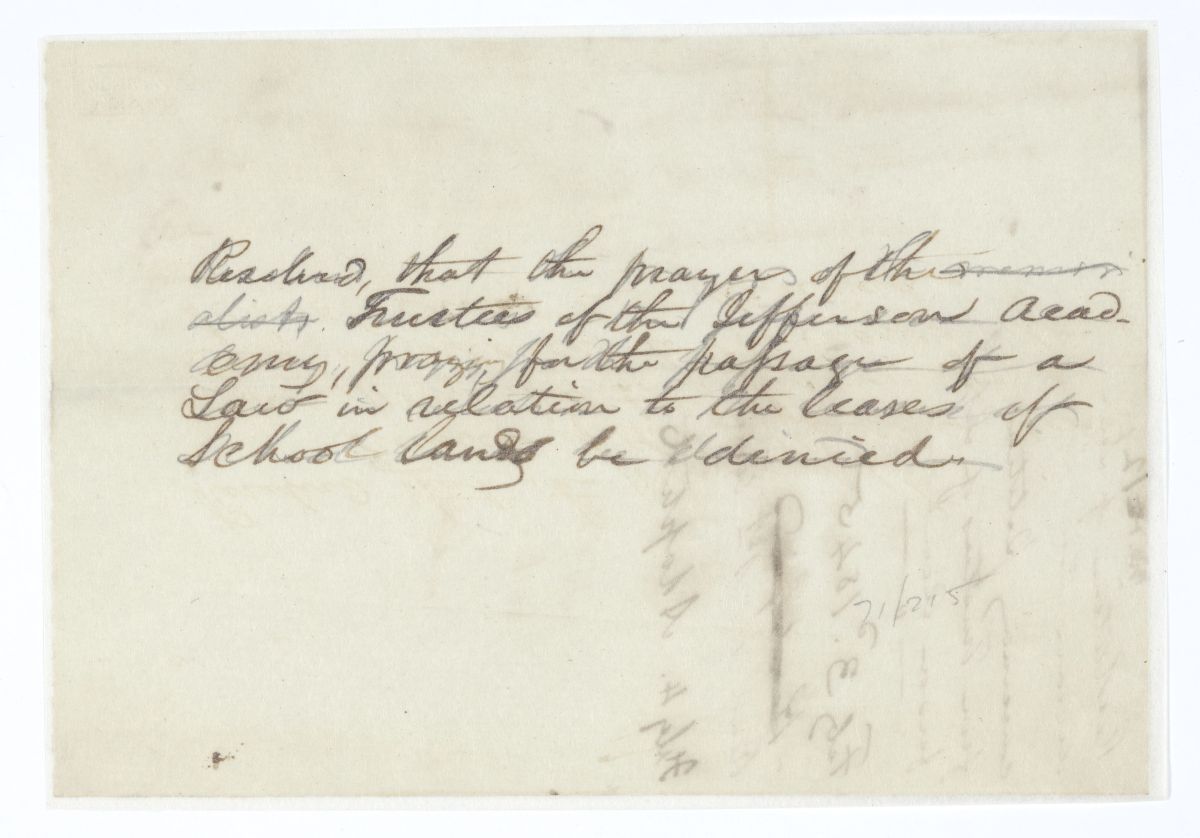 Resolved, that the prayer of the memori
alists Trustees of the Jefferson Acad-
emy, praying for the passage of a
Law in relation to the leases of
School lands be denied.
71/215